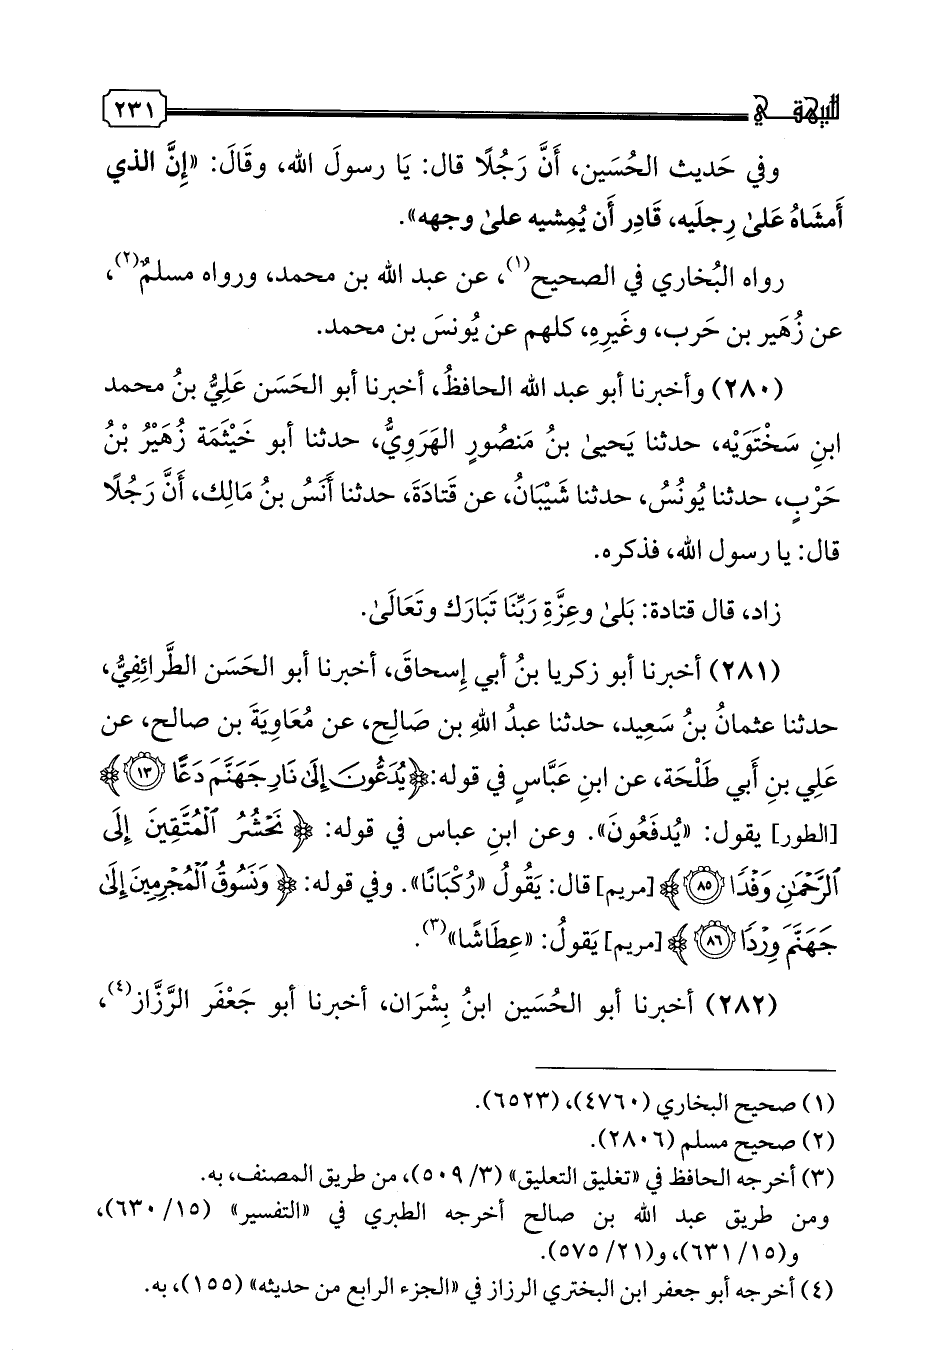 للبيهقي
٢٣١
وفي حَديث الحُسَين، أَنَّ رَجُلًا قال: يَا رسولَ الله، وقَالَ: «إِنَّ الذي
أَمشَاهُ عَلىٰ رِجلَيه، قَادِر أَن يُمشيه علىٰ وجهه».
رواه البُخاري في الصحيح(١)، عن عبد الله بن محمد، ورواه مسلمٌ(٢)،
عن زُهَير بن حَرب، وغَيرِهِ، كلهم عن يُونسَ بن محمد.
(٢٨٠) وأخبرنا أبو عبد الله الحافظُ، أخبرنا أبو الحَسَن عَلِيُّ بنُ محمد
ابنِ سَخْتَوَيْه، حدثنا يَحيىٰ بنُ مَنصُورٍ الهَرَوِيُّ، حدثنا أبو خَيْثَمَة زُهَيْرُ بْنُ
حَرْبٍ، حدثنا يُونُسُ، حدثنا شَيْبَانُ، عن قَتادَةَ، حدثنا أَنَسُ بنُ مَالِك، أَنَّ رَجُلًا
قال: يا رسول الله، فذكره.
زاد، قال قتادة: بَلىٰ وعِزَّةِ رَبِّنَا تَبَارَك وتَعَالَىٰ.
(٢٨١) أخبرنا أبو زكريا بنُ أبي إِسحاقَ، أخبرنا أبو الحَسَن الطَّرائِفِيُّ،
حدثنا عثمانُ بنُ سَعِيد، حدثنا عبدُ اللهِ بن صَالِح، عن مُعَاوِيَةَ بن صالح، عن
علي بنِ أَبي طَلْحَة، عن ابنِ عَبَّاسٍ في قوله: ﴿يُدَعُّونَ إِلَىٰ نَارِ جَهَنَّمَ دَعًّا ١٣﴾
[الطور] يقول: «يُدفَعُونَ». وعن ابنِ عباس في قوله: ﴿نَحْشُرُ ٱلْمُتَّقِينَ إِلَى
ٱلرَّحْمَٰنِ وَفْدًا ٨٥﴾ [مريم] قال: يَقُولُ «رُكْبَانًا». وفي قوله: ﴿وَنَسُوقُ ٱلْمُجْرِمِينَ إِلَىٰ
جَهَنَّمَ وِرْدًا ٨٦﴾ [مريم] يَقولُ: «عِطَاشًا»(٣).
(٢٨٢) أخبرنا أبو الحُسَين ابنُ بِشْرَان، أخبرنا أبو جَعْفَر الرَّزَّاز(٤)،
(١) صحيح البخاري (٤٧٦٠)، (٦٥٢٣).
(٢) صحيح مسلم (٢٨٠٦).
(٣) أخرجه الحافظ في «تغليق التعليق» (٣/ ٥٠٩)، من طريق المصنف، به.
ومن طريق عبد الله بن صالح أخرجه الطبري في «التفسير» (١٥/ ٦٣٠)،
و(١٥/ ٦٣١)، و(٢١/ ٥٧٥).
(٤) أخرجه أبو جعفر ابن البختري الرزاز في «الجزء الرابع من حديثه» (١٥٥)، به.